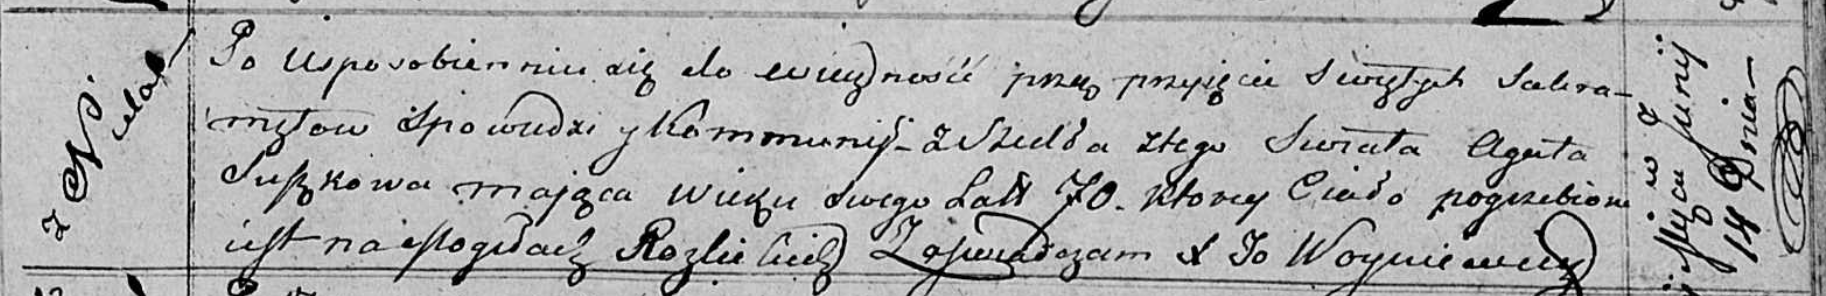 z N.
sioła
Po Usposobienniu się do wieczność przez przyięcie Swiętych Sakra-
męntow Spowiedzi y Kommunij- zSzedła ztego Swiata Agata
Suszkowa mająca wieku swego Latt 70. ktorey Ciało pogrzebione
iest na Mogiłach Rozlickich Zaswiadczam X Jo Woyniewicz
w
Mcu Junij
14 Dnia